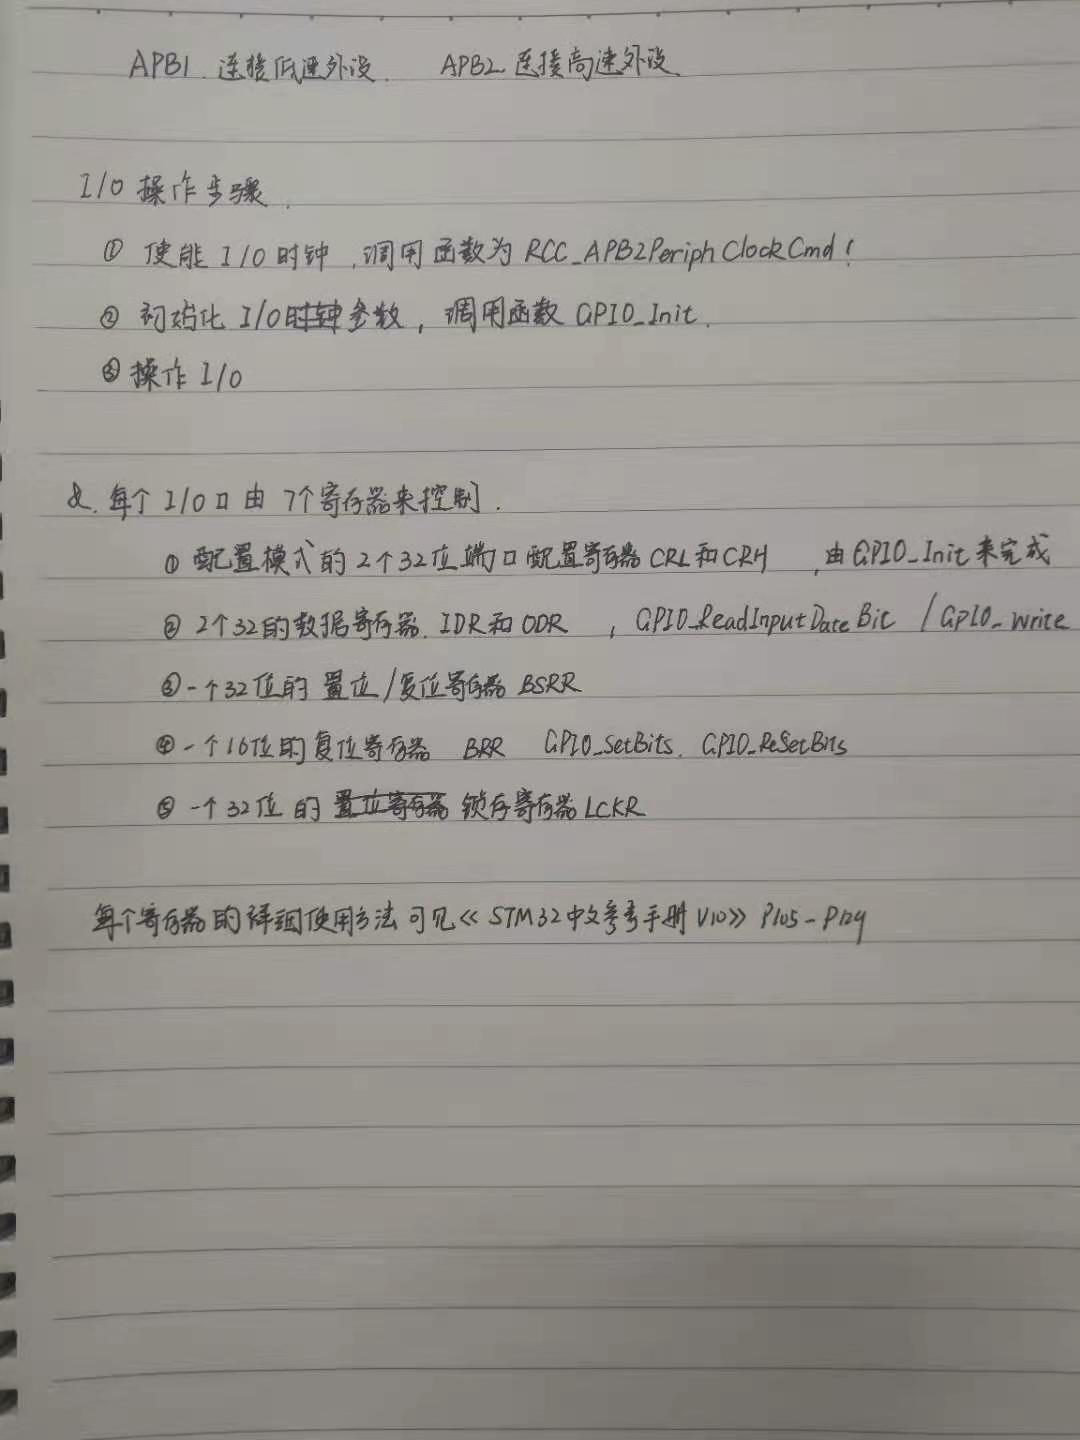 APB1. 连接低速外设. APB2 连接高速外设.
I/O 操作步骤.
① 使能 I/O 时钟, 调用函数为 RCC_APB2PeriphClockCmd!
② 初始化 I/O时钟参数, 调用函数 GPIO_Init.
③ 操作 I/O
&. 每个 I/O 口 由 7个寄存器来控制.
① 配置模式的 2个32位端口配置寄存器 CRL和CRH , 由GPIO_Init来完成
② 2个32的数据寄存器. IDR和ODR , GPIO_ReadInputDateBit / GPIO_write
③ 一个32位的 置位/复位寄存器 BSRR
④ 一个16位的复位寄存器 BRR GPIO_SetBits. GPIO_ReSetBits
⑤ 一个32位的 置位寄存器 锁存寄存器 LCKR
每个寄存器的详细使用方法可见《STM32中文参考手册V10》 P105-P124